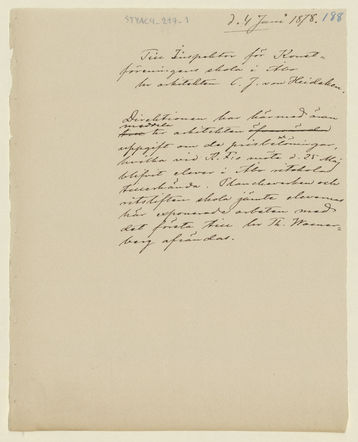 d. 4 Juni 1878. 188
Till Inspektor för Konst-
föreningens skola i Åbo
hr arkitekten C. J. von Heideken.
Direktionen har härmed äran
meddela
hr arkitekten
uppgift om de prisbelöningar,
hvilka vid K. F:s möte d. 25 Maj
blifvit elever i Åbo ritskola
tillerkända. Plancheverken och
ritstiften skola jämte elevernas
här exponerade arbeten med
det första till hr Th. Waener-
berg afsändas.